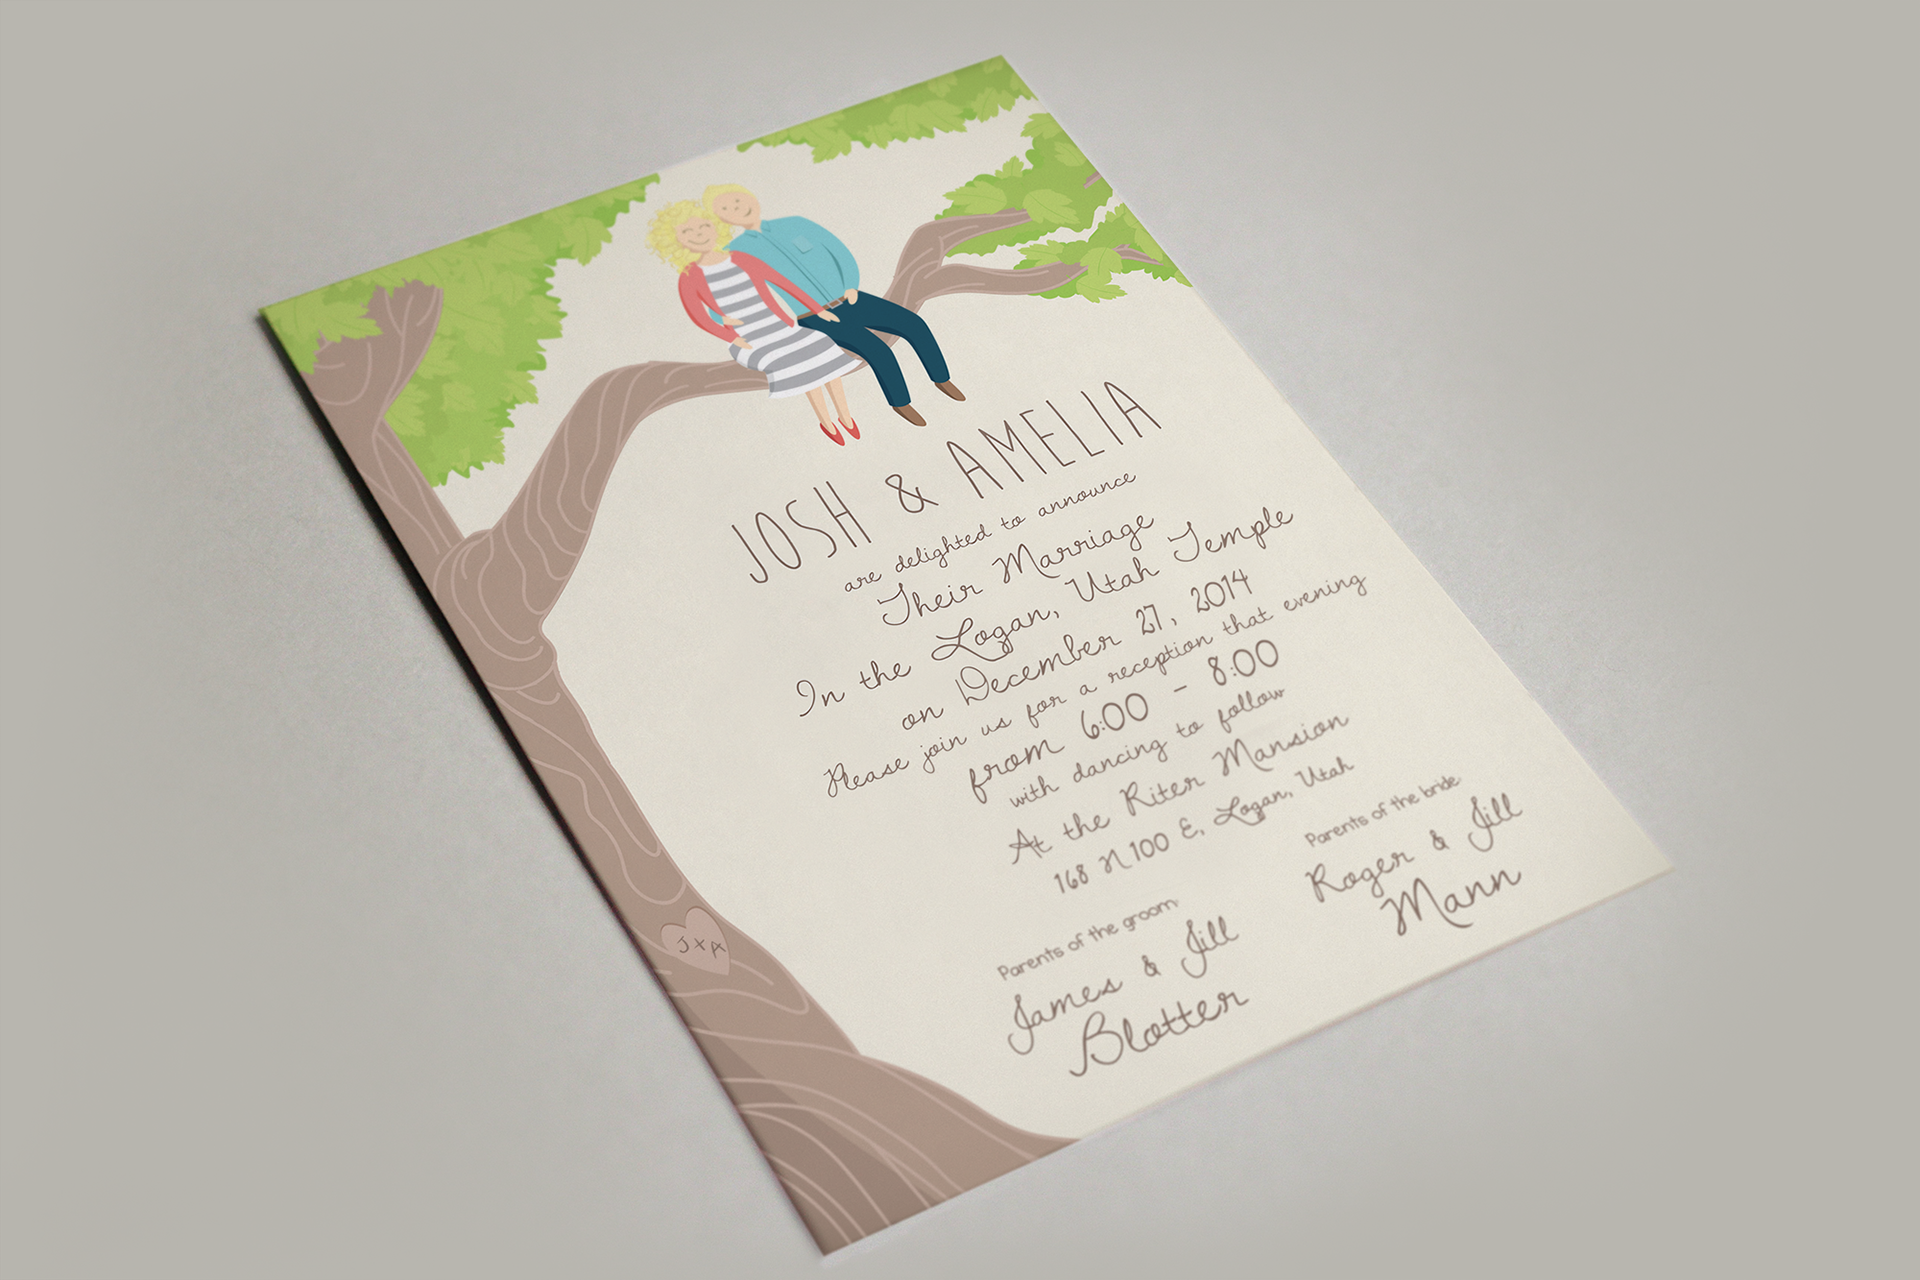 JOSH & AMELIA
are delighted to announce
Their Marriage
In the Logan, Utah Temple
on December 27, 2014
Please join us for a reception that evening
from 6:00 - 8:00
with dancing to follow
At the Riter Mansion
168 N 100 E, Logan, Utah
Parents of the bride:
Roger & Jill
Mann
Parents of the groom:
James & Jill
Blotter
J+A